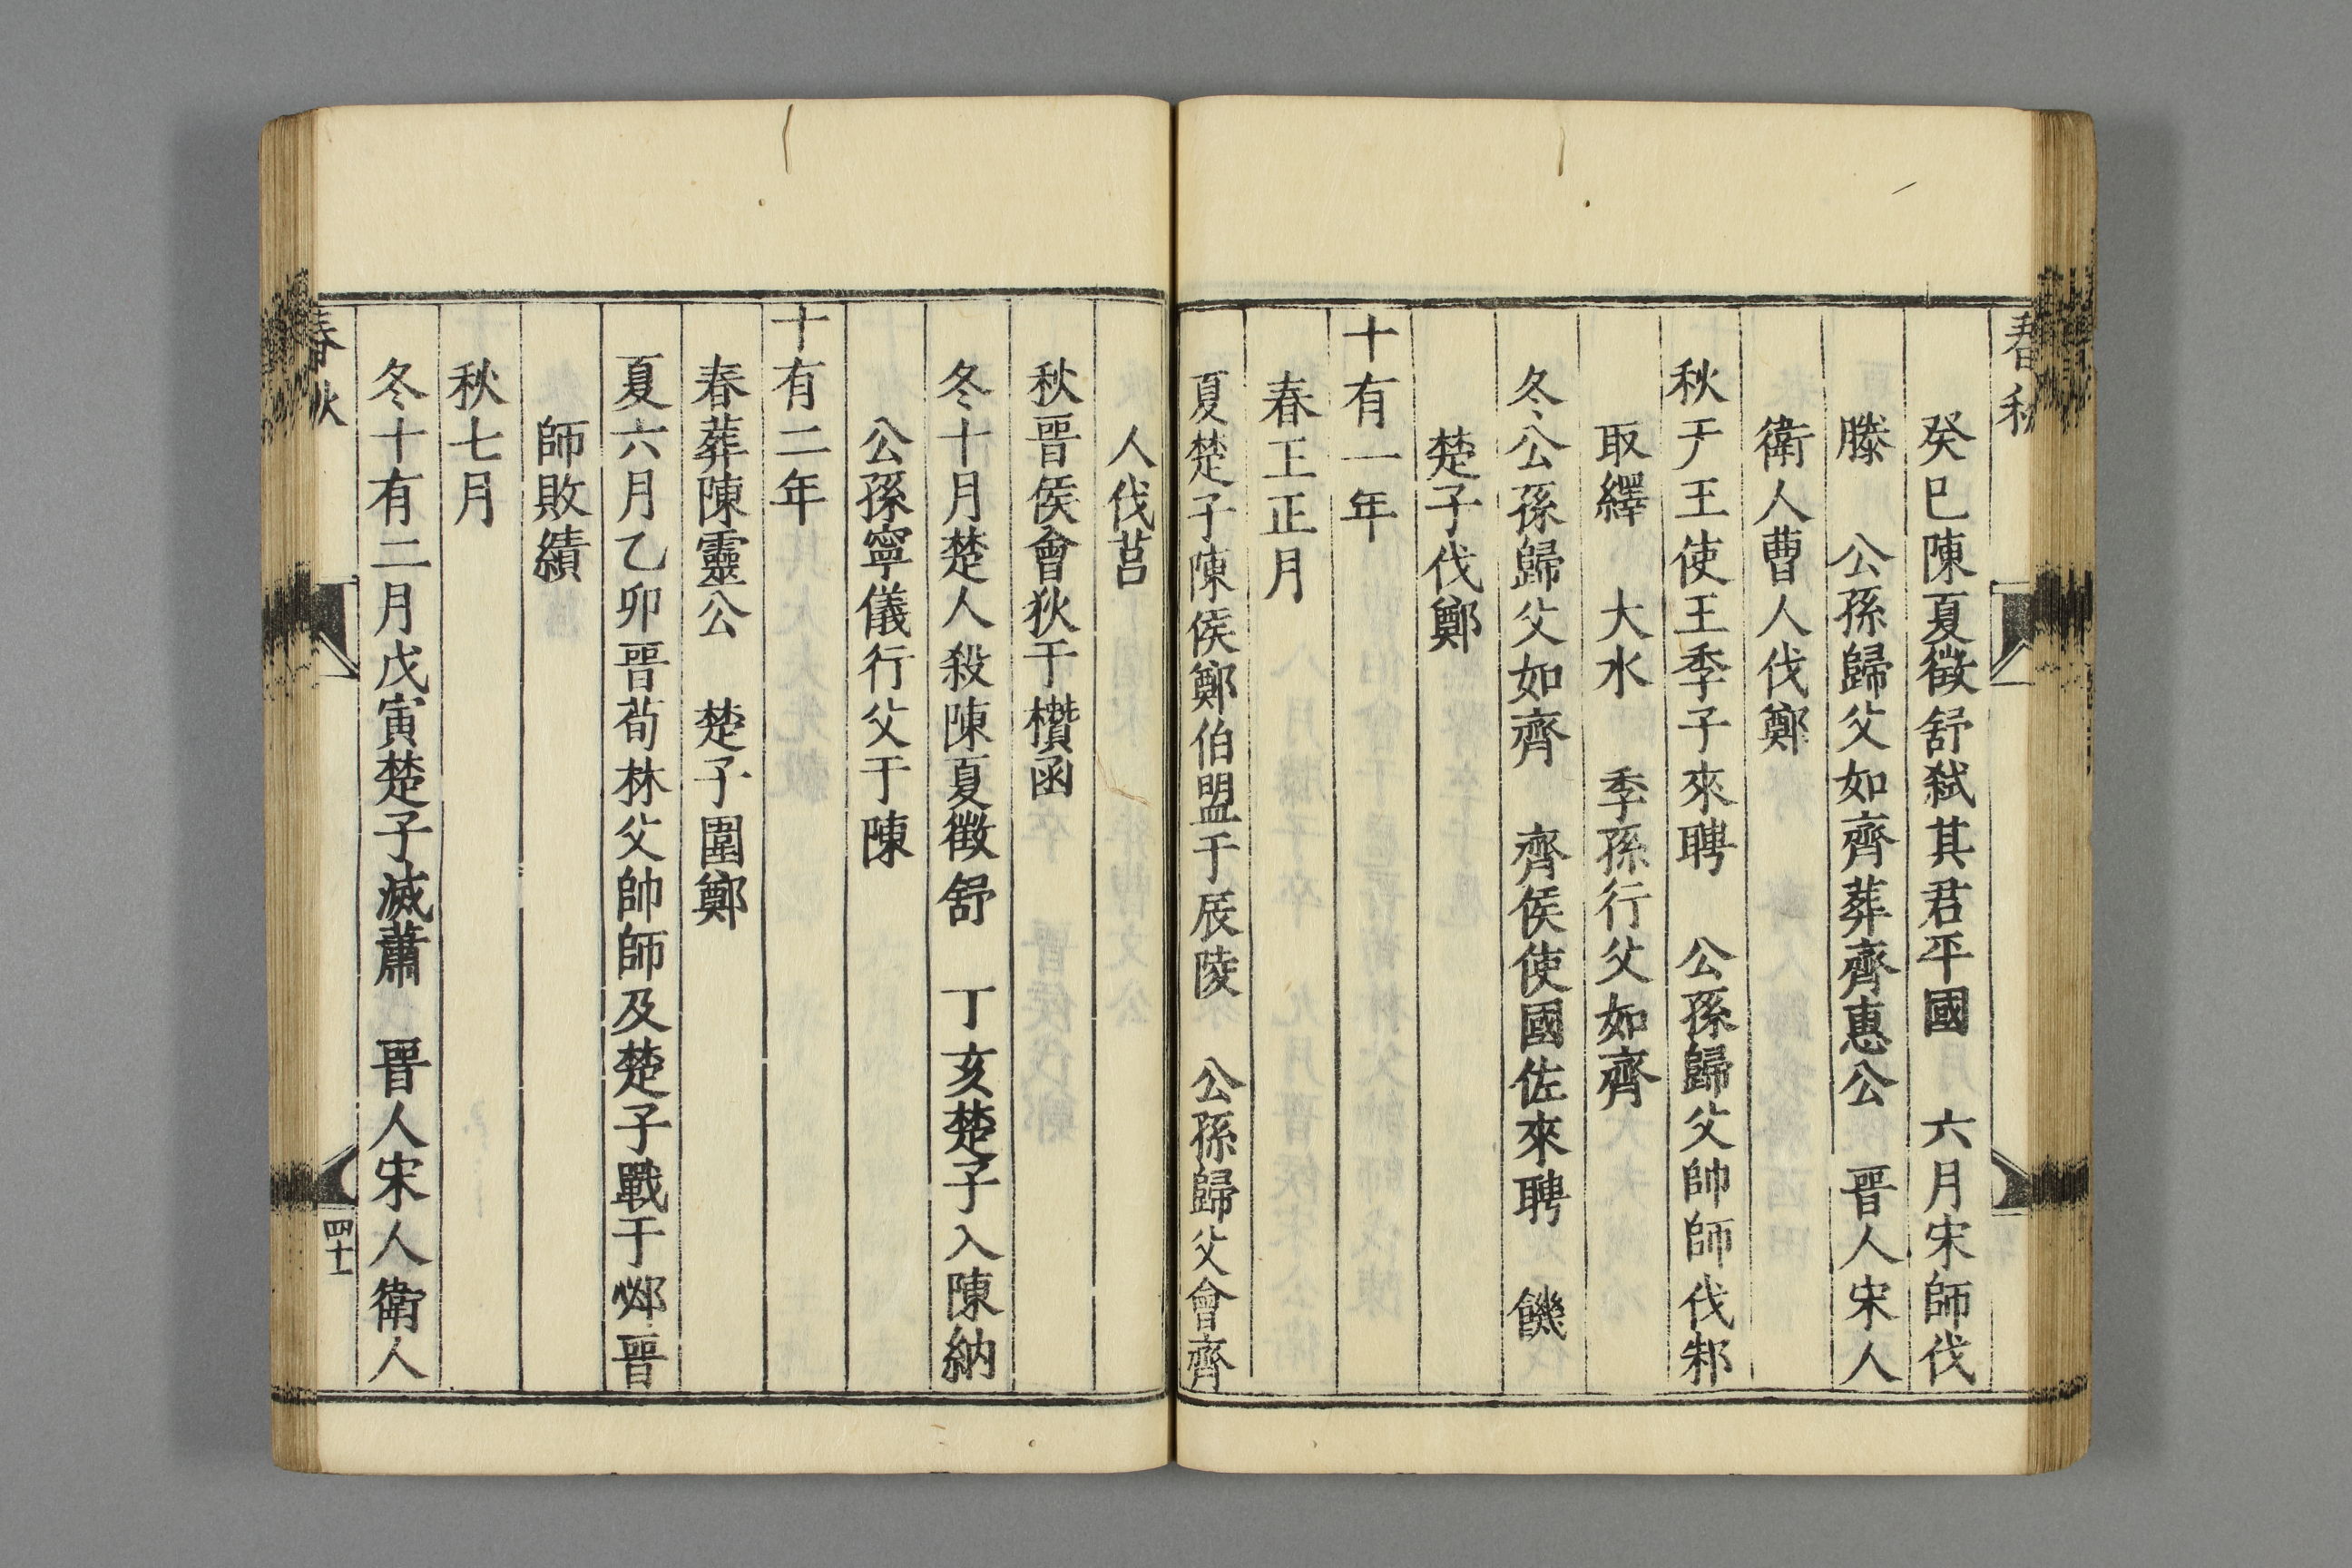 春秋
癸巳陳夏徵舒弑其君平國　六月宋師伐
滕　公孫歸父如齊葬齊惠公　晉人宋人
衛人曹人伐鄭
秋天王使王季子來聘　公孫歸父帥師伐邾
取繹　大水　季孫行父如齊
冬公孫歸父如齊　齊侯使國佐來聘　饑
楚子伐鄭
十有一年
春王正月
夏楚子陳侯鄭伯盟于辰陵　公孫歸父會齊
人伐莒
秋晉侯會狄于欑函
冬十月楚人殺陳夏徵舒　丁亥楚子入陳納
公孫寧儀行父于陳
十有二年
春葬陳靈公　楚子圍鄭
夏六月乙卯晉荀林父帥師及楚子戰于邲晉
師敗績
秋七月
冬十有二月戊寅楚子滅蕭　晉人宋人衛人
春秋
四十一